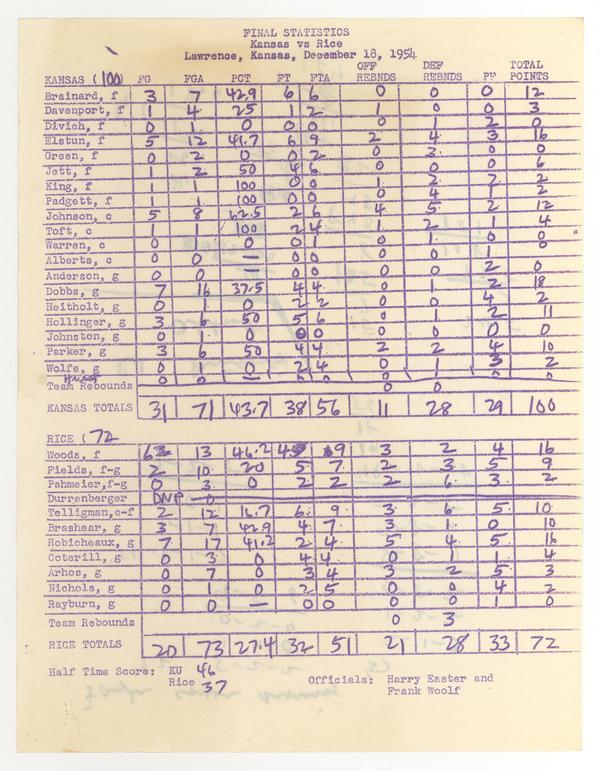 FINAL STATISTICS
Kansas vs Rice
Lawrence, Kansas, December 18, 1954
OFF DEF TOTAL
KANSAS (100) FG FGA PCT FT FTA REBNDS REBNDS PF POINTS
Brainard, f 3 7 42.9 6 6 0 0 0 12
Davenport, f 1 4 25 1 2 1 0 0 3
Divich, f 0 1 0 0 0 0 1 2 0
Elstun, f 5 12 41.7 6 9 2 4 3 16
Green, f 0 2 0 0 2 0 3 0 0
Jett, f 1 2 50 4 6 0 0 0 6
King, f 1 1 100 0 0 1 2 2
Padgett, f 1 1 100 0 0 0 4 1 2
Johnson, c 5 8 62.5 2 6 4 5 2 12
Toft, c 1 1 100 2 4 1 2 1 4
Warren, c 0 0 0 0 1 0 1 0 0
Alberts, c 0 0 — 0 0 0 0 1
Anderson, g 0 0 — 0 0 0 0 2 0
Dobbs, g 7 16 37.5 4 4 0 1 2 18
Heitholt, g 0 1 0 2 2 0 0 4 2
Hollinger, g 3 6 50 5 6 0 1 2 11
Johnston, g 0 1 0 0 0 0 0 0 0
Parker, g 3 6 50 4 4 2 2 4 10
Wolfe, g 0 1 0 2 4 0 1 3 2
0 0 — 0 0 0 0 0 0
Team Rebounds 0 0
KANSAS TOTALS 31 71 43.7 38 56 11 28 29 100
RICE (72
Woods, f 6 13 46.2 4 9 3 2 4 16
Fields, f-g 2 10 20 5 7 2 3 5 9
Pahmeier, f-g 0 3 0 2 2 2 6 3 2
Durrenberger DNP — 0
Telligman, c-f 2 12 16.7 6 9 3 6 5 10
Brashear, g 3 7 42.9 4 7 3 1 0 10
Robicheaux, g 7 17 41.2 2 4 5 4 5 16
Coterill, g 0 3 0 4 4 0 1 1 4
Arhos, g 0 7 0 3 4 3 2 5 3
Nichols, g 0 1 0 2 5 0 0 4 2
Rayburn, g 0 0 — 0 0 0 0 1 0
Team Rebounds 0 3
RICE TOTALS 20 73 27.4 32 51 21 28 33 72
Half Time Score: KU 46
Rice 37 Officials: Harry Easter and
Frank Woolf